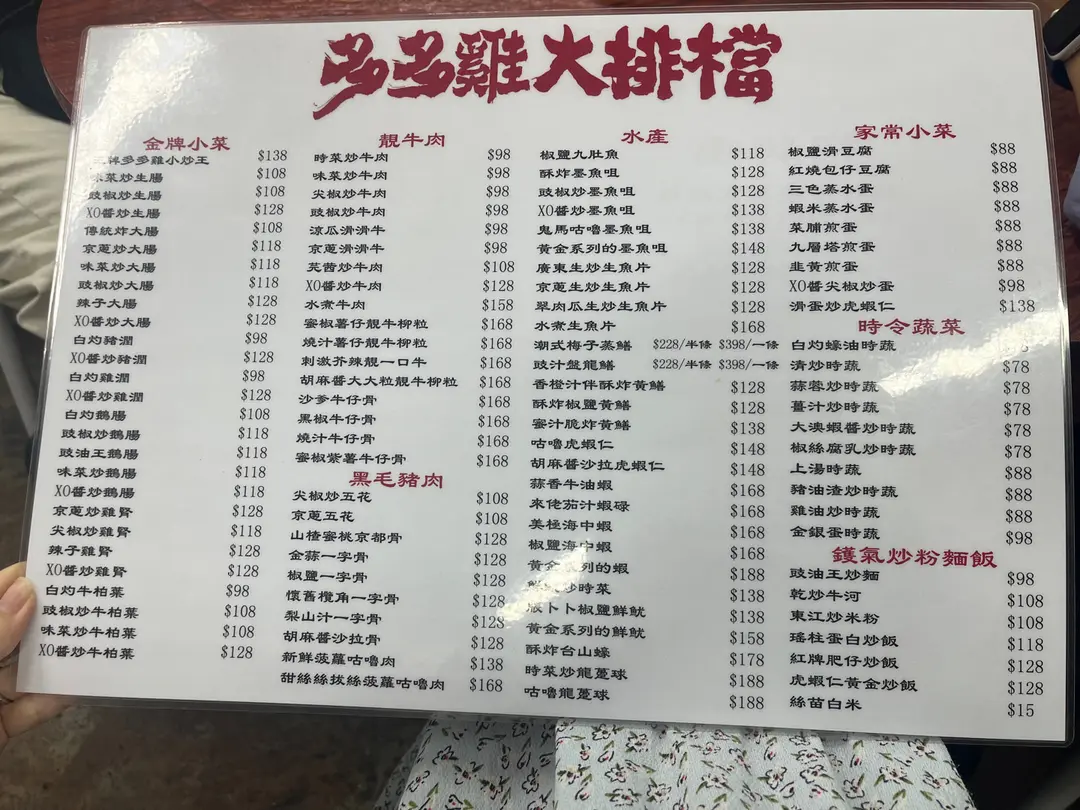 多多雞大排檔
金牌小菜
牌多多雞小炒王 $138
味菜炒生腸 $108
豉椒炒生腸 $108
XO醬炒生腸 $128
傳統炸大腸 $108
京蔥炒大腸 $118
味菜炒大腸 $118
豉椒炒大腸 $118
辣子大腸 $128
XO醬炒大腸 $128
白灼豬潤 $98
XO醬炒豬潤 $128
白灼雞潤 $98
XO醬炒雞潤 $128
白灼鵝腸 $108
豉椒炒鵝腸 $118
豉油王鵝腸 $118
味菜炒鵝腸 $118
XO醬炒鵝腸 $118
京蔥炒雞腎 $128
尖椒炒雞腎 $118
辣子雞腎 $128
XO醬炒雞腎 $128
白灼牛柏葉 $98
豉椒炒牛柏葉 $108
味菜炒牛柏葉 $108
XO醬炒牛柏葉 $128
靚牛肉
時菜炒牛肉 $98
味菜炒牛肉 $98
尖椒炒牛肉 $98
豉椒炒牛肉 $98
涼瓜滑滑牛 $98
京蔥滑滑牛 $98
芫茜炒牛肉 $108
XO醬炒牛肉 $128
水煮牛肉 $158
蜜椒薯仔靚牛柳粒 $168
燒汁薯仔靚牛柳粒 $168
刺激芥辣靚一口牛 $168
胡麻醬大大粒靚牛柳粒 $168
沙爹牛仔骨 $168
黑椒牛仔骨 $168
燒汁牛仔骨 $168
蜜椒紫薯牛仔骨 $168
黑毛豬肉
尖椒炒五花 $108
京蔥五花 $108
山楂蜜桃京都骨 $128
金蒜一字骨 $128
椒鹽一字骨 $128
懷舊欖角一字骨 $128
梨山汁一字骨 $128
胡麻醬沙拉骨 $128
新鮮菠蘿咕嚕肉 $138
甜絲絲拔絲菠蘿咕嚕肉 $168
水產
椒鹽九肚魚 $118
酥炸墨魚咀 $128
豉椒炒墨魚咀 $128
XO醬炒墨魚咀 $138
鬼馬咕嚕墨魚咀 $138
黃金系列的墨魚咀 $148
廣東生炒生魚片 $128
京蔥生炒生魚片 $128
翠肉瓜生炒生魚片 $128
水煮生魚片 $168
潮式梅子蒸鱔 $228/半條 $398/一條
豉汁盤龍鱔 $228/半條 $398/一條
香橙汁伴酥炸黃鱔 $128
酥炸椒鹽黃鱔 $128
蜜汁脆炸黃鱔 $138
咕嚕虎蝦仁 $148
胡麻醬沙拉虎蝦仁 $148
蒜香牛油蝦 $168
來佬茄汁蝦碌 $168
美極海中蝦 $168
椒鹽海中蝦 $168
黃金系列的蝦 $188
炒時菜 $138
卜卜椒鹽鮮魷 $138
黃金系列的鮮魷 $158
酥炸台山蠔 $178
時菜炒龍躉球 $188
咕嚕龍躉球 $188
家常小菜
椒鹽滑豆腐 $88
紅燒包仔豆腐 $88
三色蒸水蛋 $88
蝦米蒸水蛋 $88
菜脯煎蛋 $88
九層塔煎蛋 $88
韭黃煎蛋 $88
XO醬尖椒炒蛋 $98
滑蛋炒虎蝦仁 $138
時令蔬菜
白灼蠔油時蔬
清炒時蔬 $78
蒜蓉炒時蔬 $78
薑汁炒時蔬 $78
大澳蝦醬炒時蔬 $78
椒絲腐乳炒時蔬 $78
上湯時蔬 $88
豬油渣炒時蔬 $88
雞油炒時蔬 $88
金銀蛋時蔬 $98
鑊氣炒粉麵飯
豉油王炒麵 $98
乾炒牛河 $108
東江炒米粉 $108
瑤柱蛋白炒飯 $118
紅牌肥仔炒飯 $128
虎蝦仁黃金炒飯 $128
絲苗白米 $15